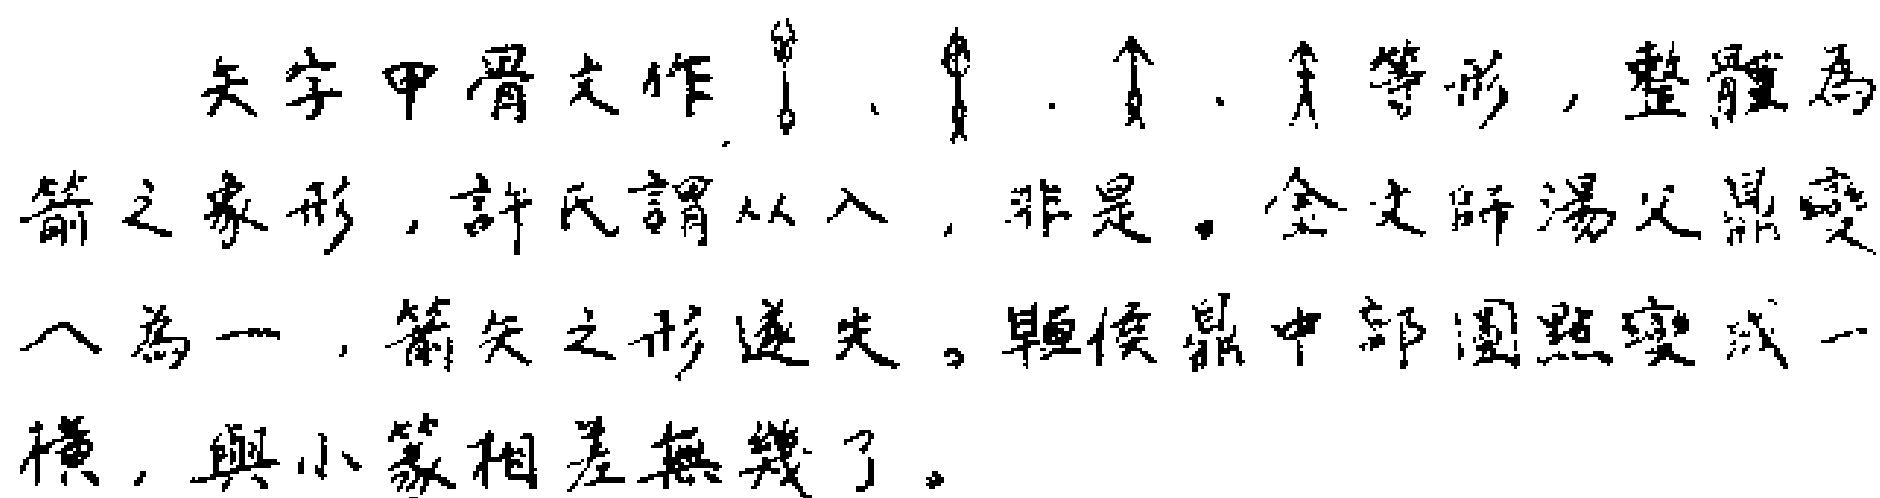 矢字甲骨文作、、、等形，整體為
箭之象形，許氏謂从入，非是。金文師湯父鼎變
へ為一，箭矢之形遂失。侯鼎中部圓點變成一
橫，與小篆相差無幾了。